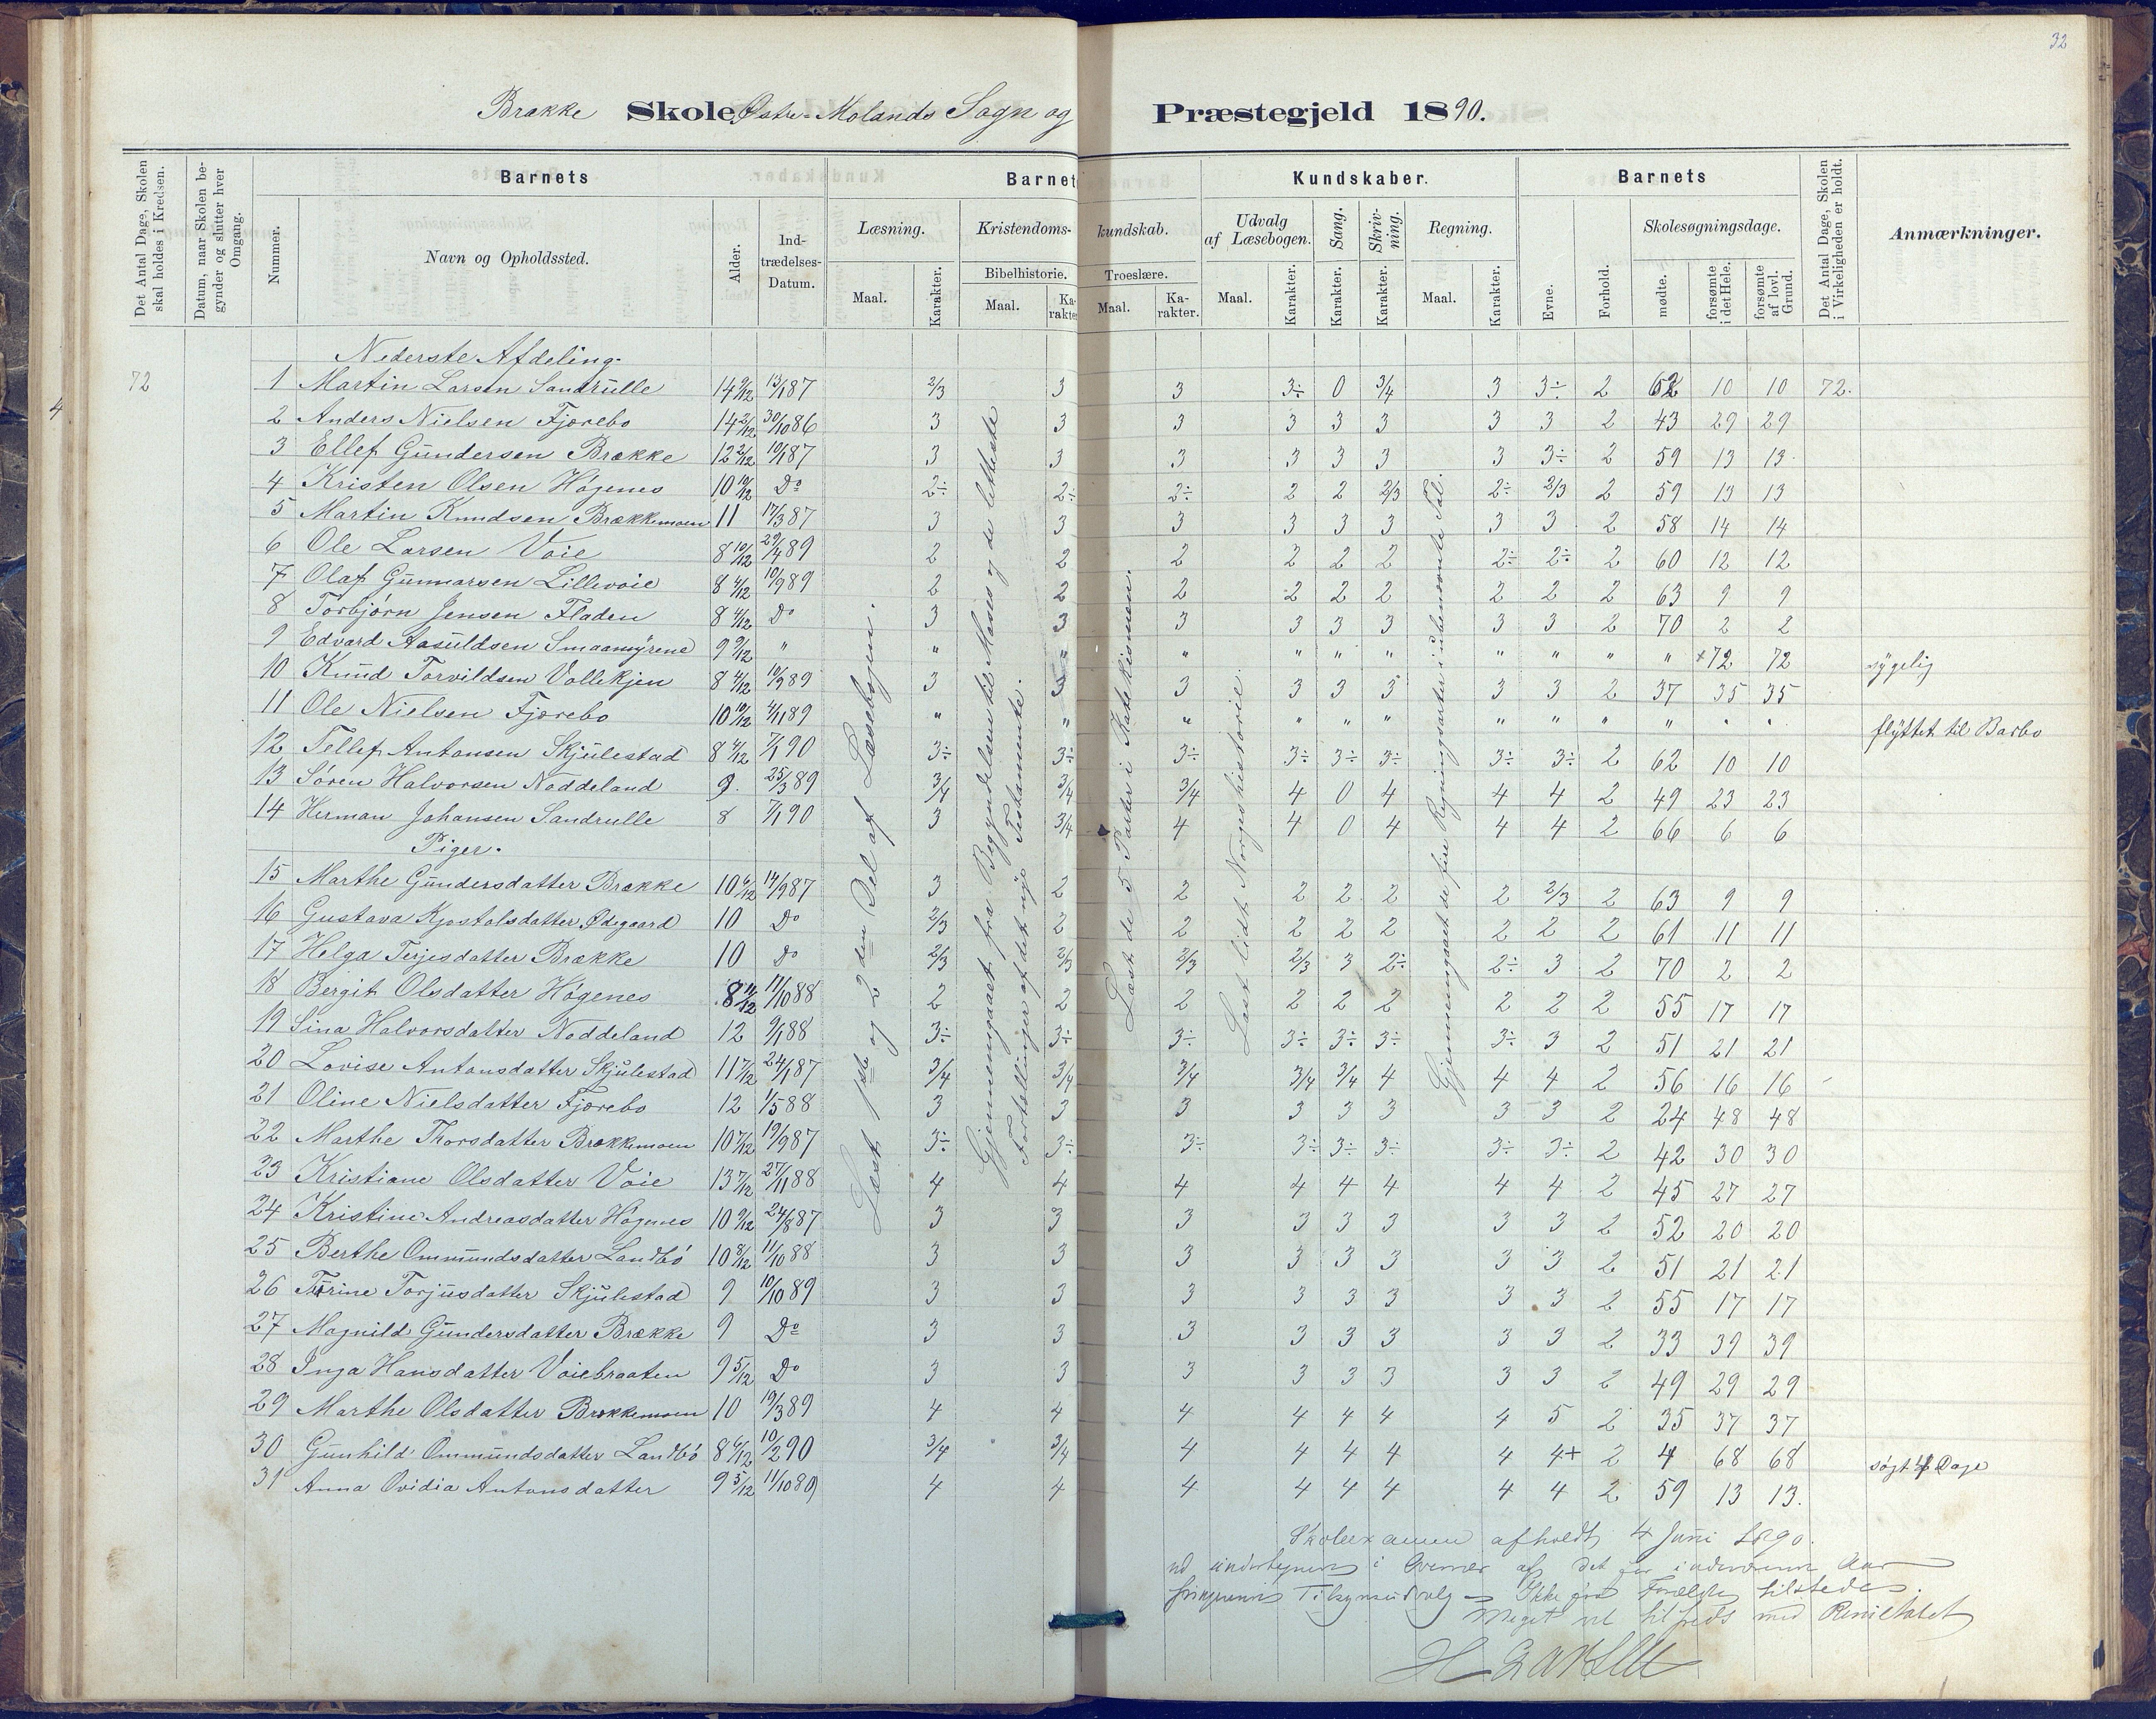 32
Brække Skole, Østre-Molands Sogn og Præstegjeld 1890.
Det Antal Dage, Skolen skal holdes i Kredsen.
Datum, naar Skolen begynder og slutter hver Omgang.
Barnets
Nummer.
Navn og Opholdssted.
Alder.
Indtrædelses-Datum.
Barnets Kundskaber.
Læsning.
Maal.
Karakter.
Kristendomskundskab.
Bibelhistorie.
Maal.
Karakter.
Troeslære.
Maal.
Karakter.
Udvalg af Læsebogen.
Maal.
Karakter.
Sang.
Karakter.
Skrivning.
Karakter.
Regning.
Maal.
Karakter.
Barnets
Evne.
Forhold.
Skolesøgningsdage.
mødte.
forsømte i det Hele.
forsømte af lovl. Grund.
Det Antal Dage, Skolen i Virkeligheden er holdt.
Anmærkninger.
Nederste Afdeling.
72 1 Martin Larsen Sandrulle 14 9/12 13/1 87 2/3 3 3 3÷ 0 3/4 3 3÷ 2 62 10 10 72.
4
2 Anders Nielsen Fjærebo 14 2/12 30/10 86 3 3 3 3 3 3 3 3 2 43 29 29
3 Ellef Gundersen Brække 12 2/12 10/1 87 3 3 3 3 3 3 3 3÷ 2 59 13 13.
4 Kristen Olsen Høgenes 10 10/12 Do 2÷ 2÷ 2÷ 2 2 2/3 2÷ 2/3 2 59 13 13
5 Martin Knudsen Brækkemoen 11 17/3 87 3 3 3 3 3 3 3 3 2 58 14 14
6 Ole Larsen Voie 8 10/12 29/4 89 2 2 2 2 2 2 2÷ 2÷ 2 60 12 12
7 Olaf Gunnarsen Lillevoie 8 4/12 10/9 89 2 2 2 2 2 2 2 2 2 63 9 9
8 Torbjørn Jensen Fladen 8 4/12 Do 3 3 3 3 3 3 3 3 2 70 2 2
9 Edvard Aasuldsen Smaamyrene 9 9/12 " " " " " " " " " " " +72 72 sygelig
10 Knud Torvildsen Vollekjen 8 4/12 10/9 89 3 3 3 3 3 3 3 3 2 37 35 35
11 Ole Nielsen Fjærebo 10 10/12 4/11 89 " " " " " " " " " " " " flyttet til Barbo
12 Tellef Antonsen Skjulestad 8 4/12 7/1 90 3÷ 3÷ 3÷ 3÷ 3÷ 3÷ 3÷ 3÷ 2 62 10 10
13 Søren Halvorsen Noddeland 9. 25/3 89 3/4 3/4 3/4 4 0 4 4 4 2 49 23 23
14 Herman Johansen Sandrulle 8 7/1 90 3 3/4 4 4 0 4 4 4 2 66 6 6
Piger.
15 Marthe Gundersdatter Brække 10 6/12 14/9 87 3 2 2 2 2 2 2 2/3 2 63 9 9
16 Gustava Kjostolsdatter Ødegaard 10 Do 2/3 2 2 2 2 2 2 2 2 61 11 11
17 Helga Terjesdatter Brække 10 Do 2/3 2/3 2/3 2/3 3 2÷ 2÷ 3 2 70 2 2
18 Bergit Olsdatter Høgenes 8 11/12 11/10 88 2 2 2 2 2 2 2 2 2 55 17 17
19 Sina Halvorsdatter Noddeland 12 9/1 88 3÷ 3÷ 3÷ 3÷ 3÷ 3÷ 3÷ 3 2 51 21 21
20 Lovise Antonsdatter Skjulestad 11 7/12 24/1 87 3/4 3/4 3/4 3/4 3/4 4 4 4 2 56 16 16
21 Oline Nielsdatter Fjærebo 12 1/5 88 3 3 3 3 3 3 3 3 2 24 48 48
22 Marthe Thorsdatter Brækkemoen 10 7/12 19/9 87 3÷ 3÷ 3÷ 3÷ 3÷ 3÷ 3÷ 3÷ 2 42 30 30
23 Kristiane Olsdatter Voie 13 7/12 27/11 88 4 4 4 4 4 4 4 4 2 45 27 27
24 Kristine Andreasdatter Høgenes 10 9/12 24/8 87 3 3 3 3 3 3 3 3 2 52 20 20
25 Berthe Ommundsdatter Landbø 10 8/12 11/10 88 3 3 3 3 3 3 3 3 2 51 21 21
26 Torine Torjusdatter Skjulestad 9 10/10 89 3 3 3 3 3 3 3 3 2 55 17 17
27 Magnild Gundersdatter Brække 9 Do 3 3 3 3 3 3 3 3 2 33 39 39
28 Inga Hansdatter Voiebraaten 9 5/12 Do 3 3 3 3 3 3 3 3 2 49 29 29
29 Marthe Olsdatter Brækkemoen 10 19/3 89 4 4 4 4 4 4 4 5 2 35 37 37
30 Gunhild Ommundsdatter Landbø 8 6/12 10/2 90 3/4 3/4 4 4 4 4 4 4+ 2 4 68 68 søgt 4 Dage
31 Anna Ovidia Antonsdatter 9 5/12 11/10 89 4 4 4 4 4 4 4 4 2 59 13 13.
Læst 1ste og 2den Del af Læsebogen.
Gjennemgaaet fra Begyndelsen til Moses og de letteste
Fortællinger af det nye Testamente.
Læst de 5 Parter i Katekismen.
Læst lidt Norgeshistorie.
Gjennemgaaet de fire Regningsarter i ubenævnte Tal.
Skolexamen afholdt 4 Juni 1890.
i Overvær af det for indeværende Aar
Tilsynsudvalg – Ikke Forældre tilstede.
Meget vel tilfreds med Resultatet